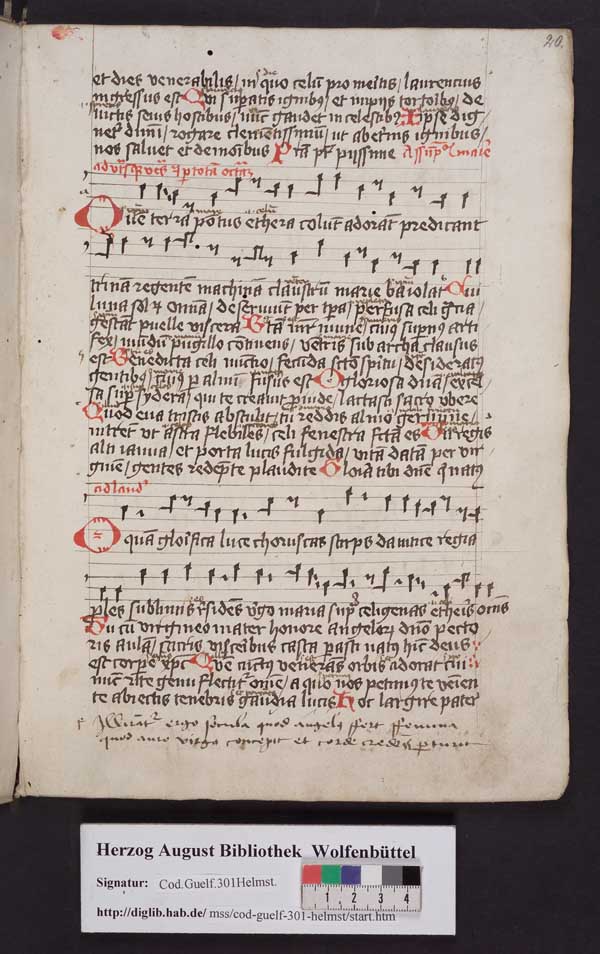 20.
et dies venerabilis / in quo celum pro meitis / laurencius
ingressus est Qui supatis ignibus / et impiis tortoibus / de
victis seuis hostibus / nunc gaudet in celestibus Ipse dig
net dnm / rogare clementissimum / ut abeternis ignibus /
nos saluet et demoibus Psta pr piissime Assupco maie
ad
Quem terra pontus ethera colunt adorat predicant
trinam regentem machinam claustrum marie baiolat Cui
luna sol et omnia / deseruiunt per tpa / perfusa celi gracia /
gestant puelle viscera Beata mr munere / cuius supnus arti
fex / mundum pugillo continens / ventris sub archa clausus
est Benedicta celi nuncio / fecunda scto spiritu / desideratus
gentibus / cuius p aluum fusus est O gloriosa dna / excel
sa super sydera / qui te creauit prouide / lactasti sacro vbere
Quod eua tristis abstulit / tu reddis almo germine /
intrent vt astra flebiles / celi fenestra facta es Tu regis
alti ianua / et porta lucis fulgida / vitam datam per vir
ginem / gentes redempte plaudite Gloria tibi dne q natus
ad laud
O quam gloifica luce choruscas stirps dauitice regia
ples sublimis residens virgo maria supra celigenas etheris omnes
Tu cum virgineo mater honore angelorum dno pecto
ris aulam / sacris visceribus casta pasti natus hinc deus
est corpe xpc Quem cunctus venerans orbis adorat cui
nunc rite genu flectitur omne / a quo nos petimus te venien
te abiectis tenebris gaudia lucis Hoc largire pater
ergo quod angelus fert femina
quod auro virgo concepit et corde credens
Herzog August Bibliothek Wolfenbüttel
Signatur: Cod.Guelf.301Helmst.
1 2 3 4
http://diglib.hab.de/ mss/cod-guelf-301-helmst/start.htm